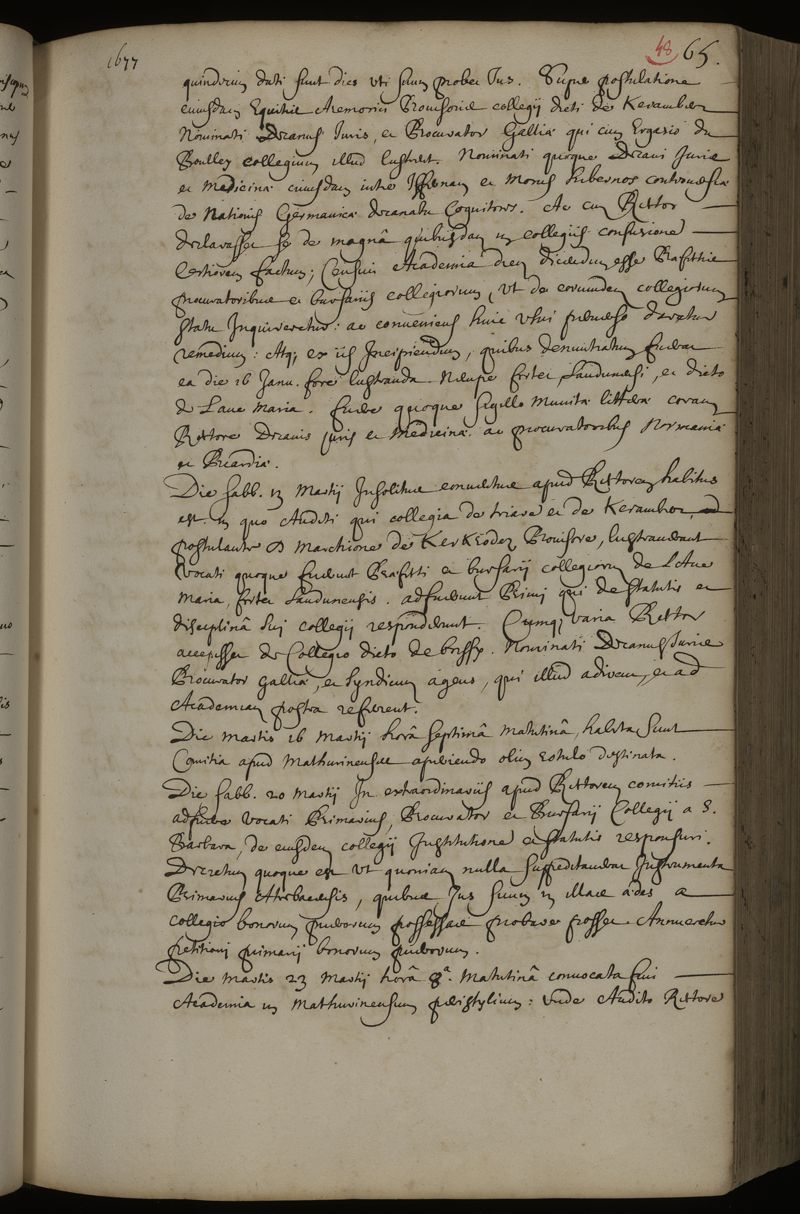 1677
48 65.
quindecim dati sunt dies uti suum probet Jus. Super postulatione
cuiusdam Equitis Provisoris collegij dicti de Kerambert
Nominati Decanus Juris, et Procurator Galliæ qui cum Ergesio du
Boulley collegium illud lustret. Nominati quoque Decani Juris
et Medicinæ cuiusdam inter et Morus hibernos controversiæ
de Nationis Germanicæ decanatu Cognitores. At cum Rector
declarasset se de magnâ quibusdam in collegiis confusione
Certiorem factum; Censuit Academia diem dicendum esse Præfectis
procuratoribus et bursariis collegiorum, ut de eorumdem collegiorum
statu Inquireretur: ac conveniens huic usui daretur
remedium: Atq; ex iis Incipiendum, quibus denuntiatum fuerat
ea die 16 Janu. fore lustranda Nempe fortet Laudunensi, et dicto
de Laue maria. fuere quoque sigillo munitæ litteræ coram
Rectore Decanis juris et Medicinæ. ac procuratoribus Normaniæ
et Picardiæ.
Die sabb. 13 Martij Insolitus conventus apud Rectorem habitus
est. in quo Auditi qui collegia de triare et de Kerambert, ad
postulante D Marchione de Kerkroder Provisore, lustraverant
Vocati quoque fuerunt Præfecti et bursarij collegiorum de L'Aue
maria, fortet Laudunensis. adfuerunt Primi qui de statutis et
disciplinâ sui collegij responderunt. Cumq; varia Rector
accepisset de Collegio dicto de boissy. Nominati Decanus Juris
Procurator Galliæ, et syndicum agens, qui illud adirent, et ad
Academiam postea referent.
Die martis 16 Martij horâ septimâ matutinâ, habita sunt
Comitia apud Mathurinenses aperiendo olim rotulo destinata.
Die sabb. 20 Martij In extraordinariis apud Rectorem comitiis
adfuere vocati Primarius, Procurator et Bursarij Collegij a S.
Barbara, de eiusdem collegij Institutione et statutis responsuri.
Decretum quoque est ut quoniam nulla suppeditaverat Instrumenta
Primarius Atrebatensis, quibus Jus suum in illas ædes a
collegio bonorum puerorum possessas probare posset. Annueretur
petitioni primarij bonorum puerorum.
Die martis 23 Martij horâ 8ª. Matutinâ convocata fuit
Academia in Mathurinensium peristylium: Unde Audito Rectore